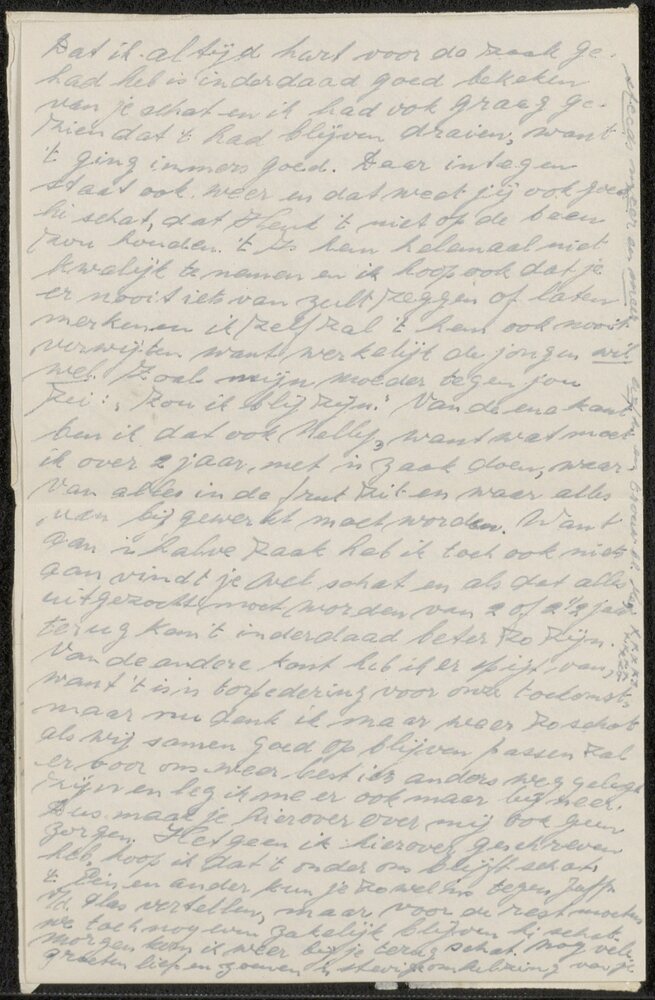 Dat ik altijd hart voor da zaak ge-
had heb is inderdaad goed bekeken
van je schat en ik had ook graag ge-
zien dat 't had blijven draaien, want
't ging immers goed. Daar integen
staat ook weer en dat weet jij ook goed
hé schat, dat Henk 't niet op de been
zou houden. 't Is hem helemaal niet
kwalijk te nemen en ik hoop ook dat je
er nooit iets van zult zeggen of laten
merken en ik zelf zal 't hem ook nooit
verwijten want werkelijk de jongen wil
wel. Zoals mijn moeder tegen jou
zei: "zou ik blij zijn." Van de ene kant
ben ik dat ook Nelly, want wat moet
ik over 2 jaar, met 'n zaak doen, waar
van alles in de prut zit en waar alles
van bij gewerkt moet worden. Want
aan 'n halve zaak heb ik toch ook niets
aan vindt je wel schat en als dat alles
uitgezocht moet worden van 2 of 2½ jaar
terug kan 't inderdaad beter zo zijn.
Van de andere kant heb ik er spijt van,
want 't is 'n torpedering voor onze toekomst,
maar nu denk ik maar weer zo schat
als wij samen goed op blijven passen zal
er voor ons weer best iets anders weggelegd
zijn en leg ik me er ook maar bij neer.
Dus maak je hierover over mij ook geen
zorgen. Hetgeen ik hierover geschreven
heb, hoop ik dat 't onder ons blijft schat.
't Een en ander kun je zowel ins tegen Jaffr.
v.d. Plas vertellen, maar voor de rest moeten
we toch nog even zakelijk blijven hé schat.
Morgen kom ik weer bij je terug schat. Nog vele
groeten liefs en zoenen stevige omhelzing van je
steeds meer en meer